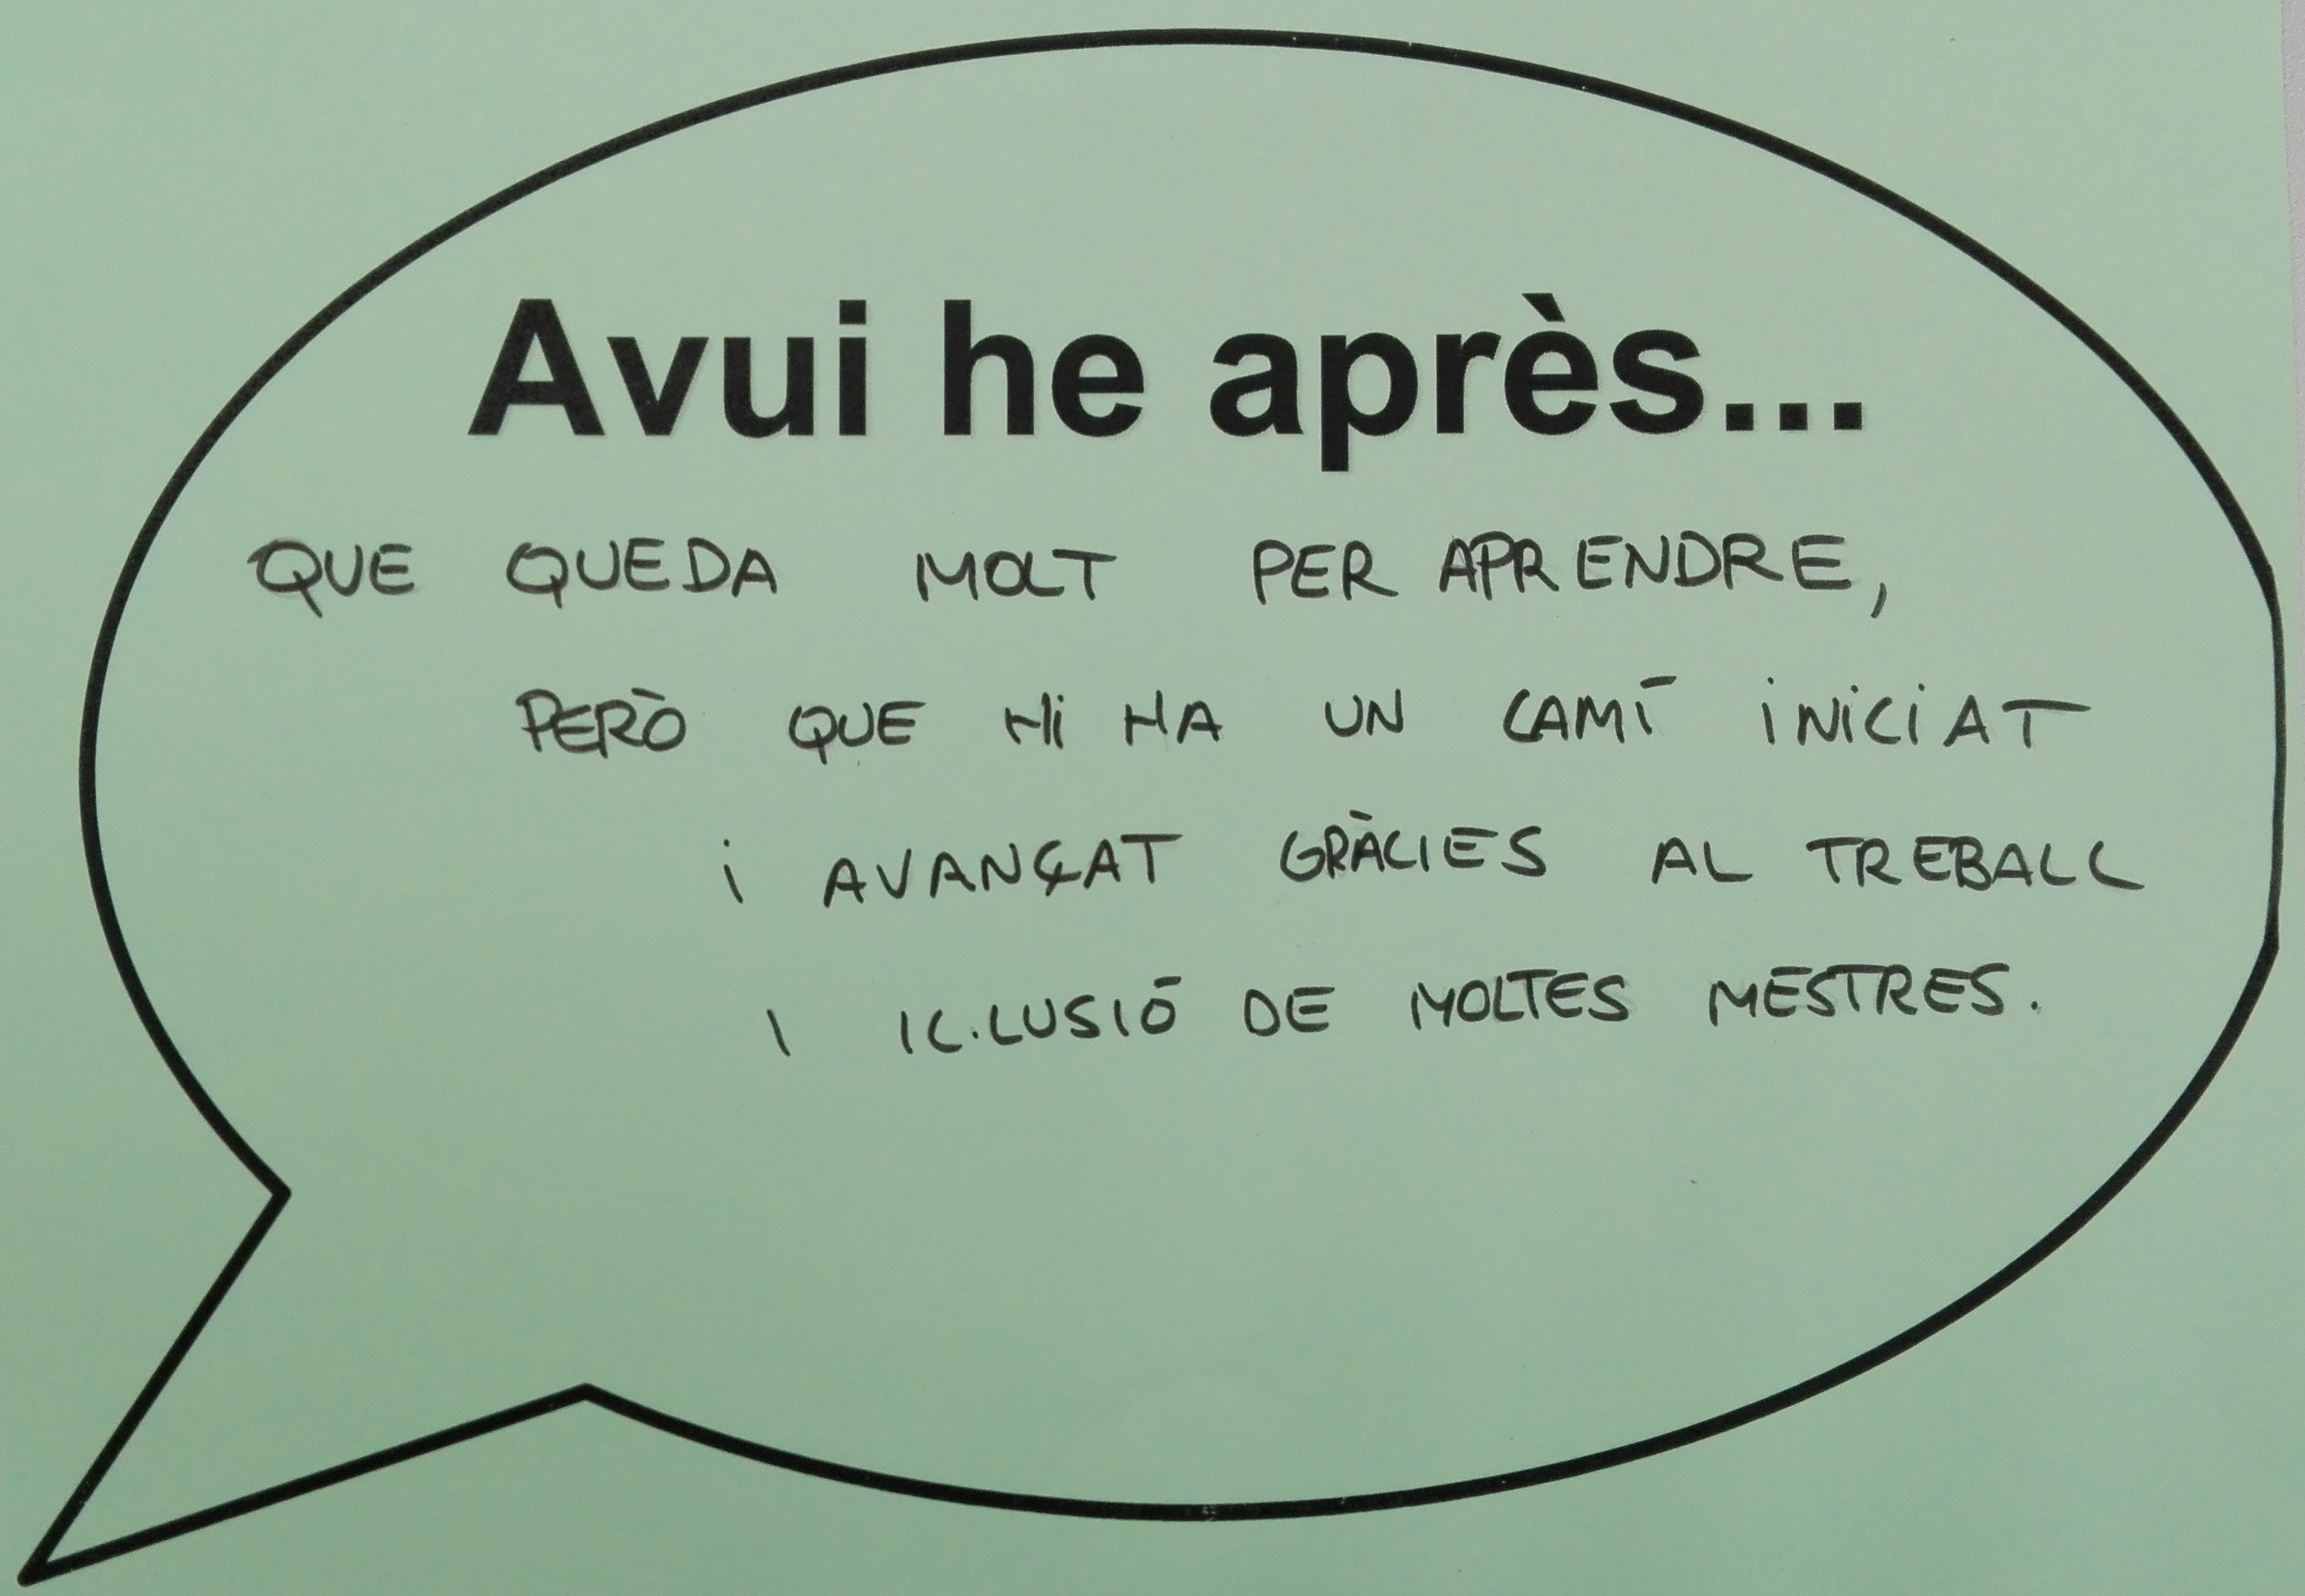 Avui he après...
QUE QUEDA MOLT PER APRENDRE,
PERÒ QUE HI HA UN CAMÍ INICIAT
I AVANÇAT GRÀCIES AL TREBALL
I IL.LUSIÓ DE MOLTES MESTRES.